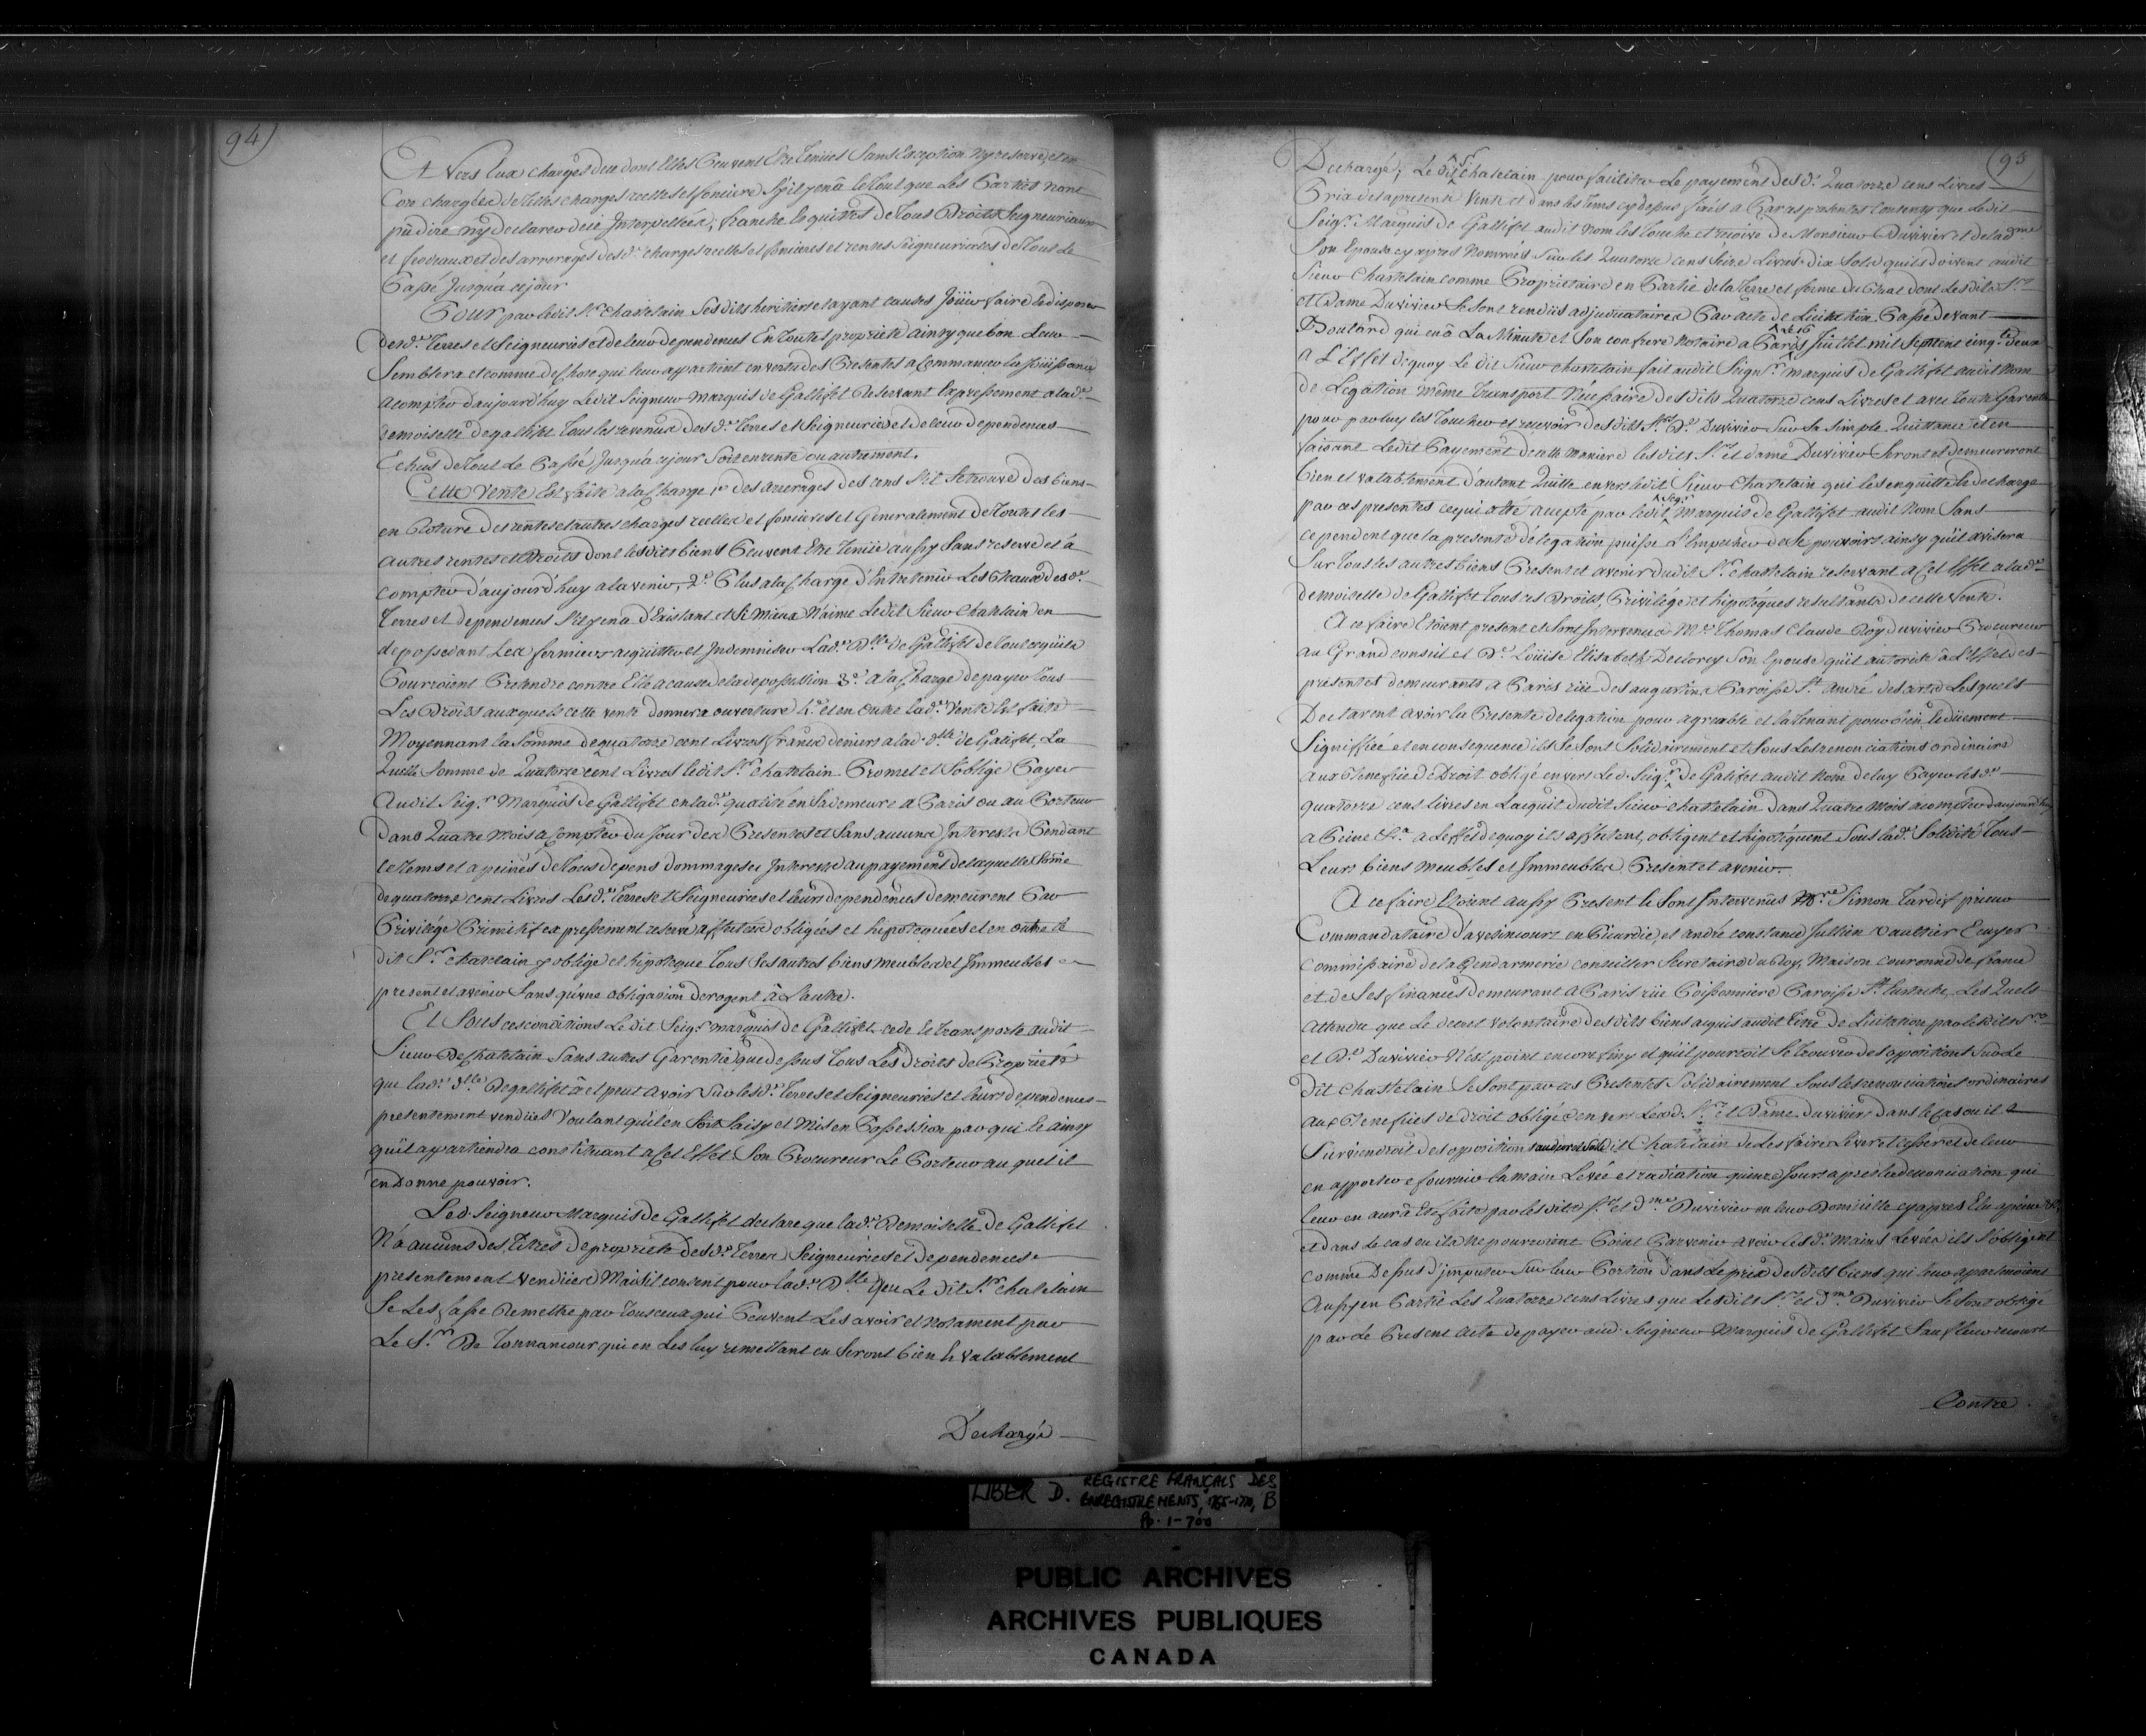 94
Et vers Eux chargés deux dont Elles Peuvent Etre Tenües Sans Exception Ny reserve, et en
Core chargées de telles charges reelles et foncieres S'il y en à le Tout que Les Parties n'ont
pû dire ny declarer de ce Interpellées; franches & quittes de Tous Droits Seigneuriaux
et feodeaux et des arrerages desd.es charges reelles et foncieres et rentes Seigneurialles de Tout Le
Passé Jusqu'à ce jour
Pour par ledit S.r Chastelain Ses dits heritiers et ayant causes Joüir faire & disposer
desd.es Terres et Seigneuries et de leur dependences En Toutes propriete ainsy que bon Leur
Semblera et comme de Chose qui leur appartient en vertu des Presentes a Commancer la Joüissance
a compter d'aujourd'huy Ledit Seigneur Marquis de Gallifet Reservant Expressement a lad.e
demoiselle de gallifet Tous les revenus desd.es Terres et Seigneuries et de leur dependences
Echus de Tout Le Passé Jusqu'à ce jour Soit en rente ou autrement.
Cette Vente Est faite a la Charge 1.o des arrerages des cens S'il Se trouve des biens
en Roture des rentes et autres charges reelles et foncieres et Generalement de Toutes les
autres rentes et Droits dont lesdits biens Peuvent Etre Tenüe aussy Sans reserve et à
compter d'aujourd'huy a l'avenir, 2.o Plus a la Charge d'Entretenir Les Beaux desd.es
Terres et dependences S'il y en a d'Existant et Si Mieux N'aime Ledit Sieur Chatelain en
depossedant Les fermiers acquitter et Indemniser Lad.e D.lle de Gallifet de tout ce qu'ils
Pourroient Pretendre contre Elle a cause de la depossession 3.o a la Charge de payer Tous
Les Droits auxquels cette vente donnera ouverture 4.o et en outre lad.e Vente Est faite
Moyennant la Somme de quatorze cent Livres francs deniers a lad.e d.lle de Galifet, La
Quelle Somme de Quatorze cent Livres ledit S.r Chatelain Promet et S'oblige Payer
Audit Seig.r Marquis de Gallifet en lad.e qualité en Sa demeure a Paris ou au Porteur
Dans Quatre Mois a Compter du Jour des Presentes et Sans aucuns Interests Pendant
le Tems et a peines de Tous depens dommages & Interests au payement de laquelle Some
de quatorze cent Livres Lesd.es Terres et Seigneuries et leurs dependences demeurent Par
Privilége Primitif expressement reservé affectées obligées et hipotequées et en outre le
dit S.r Chatelain y oblige et hipoteque Tous Ses autres biens Meubles et Immeubles
present et avenir Sans qu'une obligation derogent â L'autre.
Et Sous ces conditions Le dit Seig.r marquis de Gallifet cede & transporte audit
Sieur De Chatelain Sans autres Garentie que dessus Tous Les Droits de Proprieté
que lad.e d.lle De gallifet â et peut avoir Sur lesd.es Terres et Seigneuries et leurs dependences
presentement vendües Voulant qu'il en Soit Saisy et Mis en Possession par qui & ainsy
qu'il appartiendra constituant a Cet Effet Son Procureur Le Porteur au quel il
en Donne pouvoir.
Led. Seigneur Marquis de Gallifet declare que lad.e Demoiselle de Gallifet
N'a aucuns des Titres de proprieté desd.es Terres Seigneuries et Dependences
presentement Vendües Mais il consent pour lad.e D.lle que Le dit S.r Chatelain
Se Les fasse Remettre par Tous ceux qui Peuvent Les avoir et Notament par
Le S.r De Tonnancour qui en Les luy remettant en Seront bien & Valablement
Dechargé
95
Dechargé, Ledit S.r Chatelain pour faciliter Le payement desd.es Quatorze cens Livres
Prix de la presente Vente et dans les tems cy dessus fixés a Par as presentes Consenty que Ledit
Seig.r Marquis de Gallifet audit Nom les Touche et reçoive de Monsieur Duvivier et de lad.me
Son Epouse cy apres Nommés Sur les Quatorze cens Seize Livres dix Sols qu'ils doivent audit
Sieur Chastelain comme Proprietaire en Partie de la Terre et ferme du Chat dont Lesdits S.r
et Dame Duvivier Se Sont rendus adjudicataires Par acte de Licitation Passé devant
Doutard qui en â La Minute et Son confrere Notaire a Paris le 16 Juillet mil Septcens cinq.te deux
a L'Effet de quoy Le dit Sieur Chastelain fait audit Seign.r Marquis de Gallifet audit Nom
de Légation même Transport Necessaire desdits Quatorze cens Livres et avec Toute Garentie
pour par luy les Toucher et recevoir desdits S.r & D.e Duvivier Sur Sa Simple Quittance et en
faisant Ledit Payement de cette Maniere lesdits S.r et dame Duvivier Seront et demeureront
bien et valablement d'autant Quitte envers ledit Sieur Chastelain qui les en quitte & decharge
par ces presentes ce qui a été accepté par ledit Seig.r Marquis de Gallifet audit Nom Sans
cependent que la presente délegation puisse L'Empecher de Se pourvoir ainsy qu'il avisera
Sur Tous les autres biens Present et avenir dudit S.r Chastelain reservant a Cet Effet a lad.e
demoiselle de Gallifet Tous ces Droits, Privilége et hipotéques resultants de cette Vente.
A ce faire Etoient present et Sont Intervenus M.re Thomas Claude Roy Duvivier Procureur
au Grand conseil et D.e Loüise Elisabeth Declorey Son Epouse qu'il autorise à L'Effet des
présentes demeurants a Paris rüe des augustins Paroisse S.t andré des arts Lesquels
Declarent avoir La Presente delegation pour agreable et la Tenant pour bien & düement
Signiffiée et en consequence ils Se Sont Solidairement et Sous Les renonciations ordinaires
aux Benefice de Droit obligé envers Led. Seig.r de Galifet audit Nom de luy Payer lesd.es
quatorze cens Livres en L'acquit dudit Sieur Chatelain dans Quatre Mois a compter d'aujourd'huy
a Peine &.a a L'effet de quoy ils affectent, obligent et hipotéquent Sous lad.e Solidité Tous
Leurs biens Meubles et Immeubles Present et avenir.
A ce faire Etoient aussy Present & Sont Intervenûs M.re Simon Tardif prieur
Commandataire d'avesincourt en Picardie, et andré constance Jullien Vaultier Ecuyer
Commissaire de la Gendarmerie conseiller Secretaire du Roy, Maison couronne de france
et de Ses finances demeurant a Paris rüe Poissonniere Paroisse S.t Eustache, Les Quels
attendu que Le decret volontaire desdits biens acquis audit Titre de Licitation par lesdits S.r
et D.e Duvivier N'est point encore finy et qu'il pourroit Se Trouver des oppositions Sur Le
dit Chastelain Se Sont par ces Presentes Solidairement Sous les renonciations ordinaires
aux Benefices de droit obligés envers Lesd. S.r et Dame Duvivier dans le Cas ou il
Surviendroit des oppositions dit Chatelain de Les faire Lever & Cesser et de leur
en apporter & fournir la main Levée et radiation quinze Jours apres la denonciation qui
leur en aurâ Eté faite par lesdits S.r et d.me Duvivier en leur Domicille cy apres Elu a peine &.a
et dans le cas ou ils Ne pourroient Point Parvenir avoir lesd.es Mains Levées ils S'obligent
comme Dessus d'imputer Sur leur Portion Dans Le prix desdits biens qui leur apartenoient
Aussy en Partie Les Quatorze cens Livres que Lesdits S.r et D.me Duvivier Se Sont obligé
par Le Present Acte de payer aud. Seigneur Marquis de Gallifet Sauf leur recours
Contre
LIBER D. REGISTRE FRANÇAIS DES
ENREGISTREMENTS, 1765-1770, B
Pp. 1-700
PUBLIC ARCHIVES
ARCHIVES PUBLIQUES
CANADA